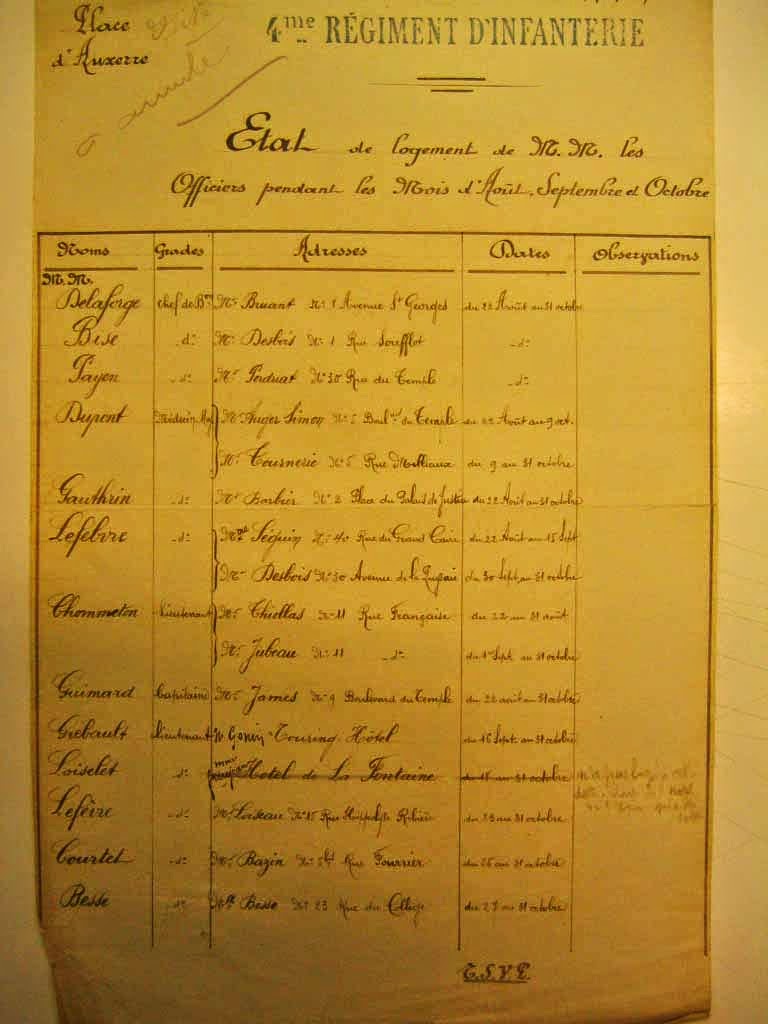 Place
d'Auxerre
4me RÉGIMENT D'INFANTERIE
Etat de logement de M. M. les
Officiers pendant les Mois d'Août, Septembre et Octobre
Noms Grades Adresses Dates Observations
M. M.
Delaforge Chef de Bon Mr Bruant No 1 Avenue St Georges du 22 Août au 31 octobre
Bise do Mr Desbois No 1 Rue Soufflot do
Payen do Mr Perduat No 30 Rue du Temple do
Dupont Médecin Maj Mr Auger Simon No 5 Boulard du Temple du 22 Août au 9 oct.
Mr Tournerie No 5 Rue Milliaux du 9 au 31 octobre
Gauthrin do Mr Barbier No 2 Place du Palais de Justice du 22 Août au 31 octobre
Lefebvre do Mme Séguin No 40 Rue du Grand Caire du 22 Août au 15 Sept
Mr Desbois No 30 Avenue de la du 30 Sept au 31 octobre
Chommeton Lieutenant Mr Chiellas No 11 Rue Française du 22 au 31 août
Mr Jubeau No 11 do du 1er Sept. au 31 octobre
Guimard Capitaine Mr James No 9 Boulevard du Temple du 22 août au 31 octobre
Grébault Lieutenant Mr Gonin Touring Hôtel du 16 Sept. au 31 octobre
Loiselet do Hotel de La Fontaine du 18 au 31 octobre
Lefèvre do Mr Loiseau No 15 Rue Hippolyte Ribière du 23 au 31 octobre
Courtet do Mr Bazin No Rue Fourrier du 26 au 31 octobre
Besse do Mlle Besse No 23 Rue du Collège du 27 au 31 octobre
T.S.V.P.